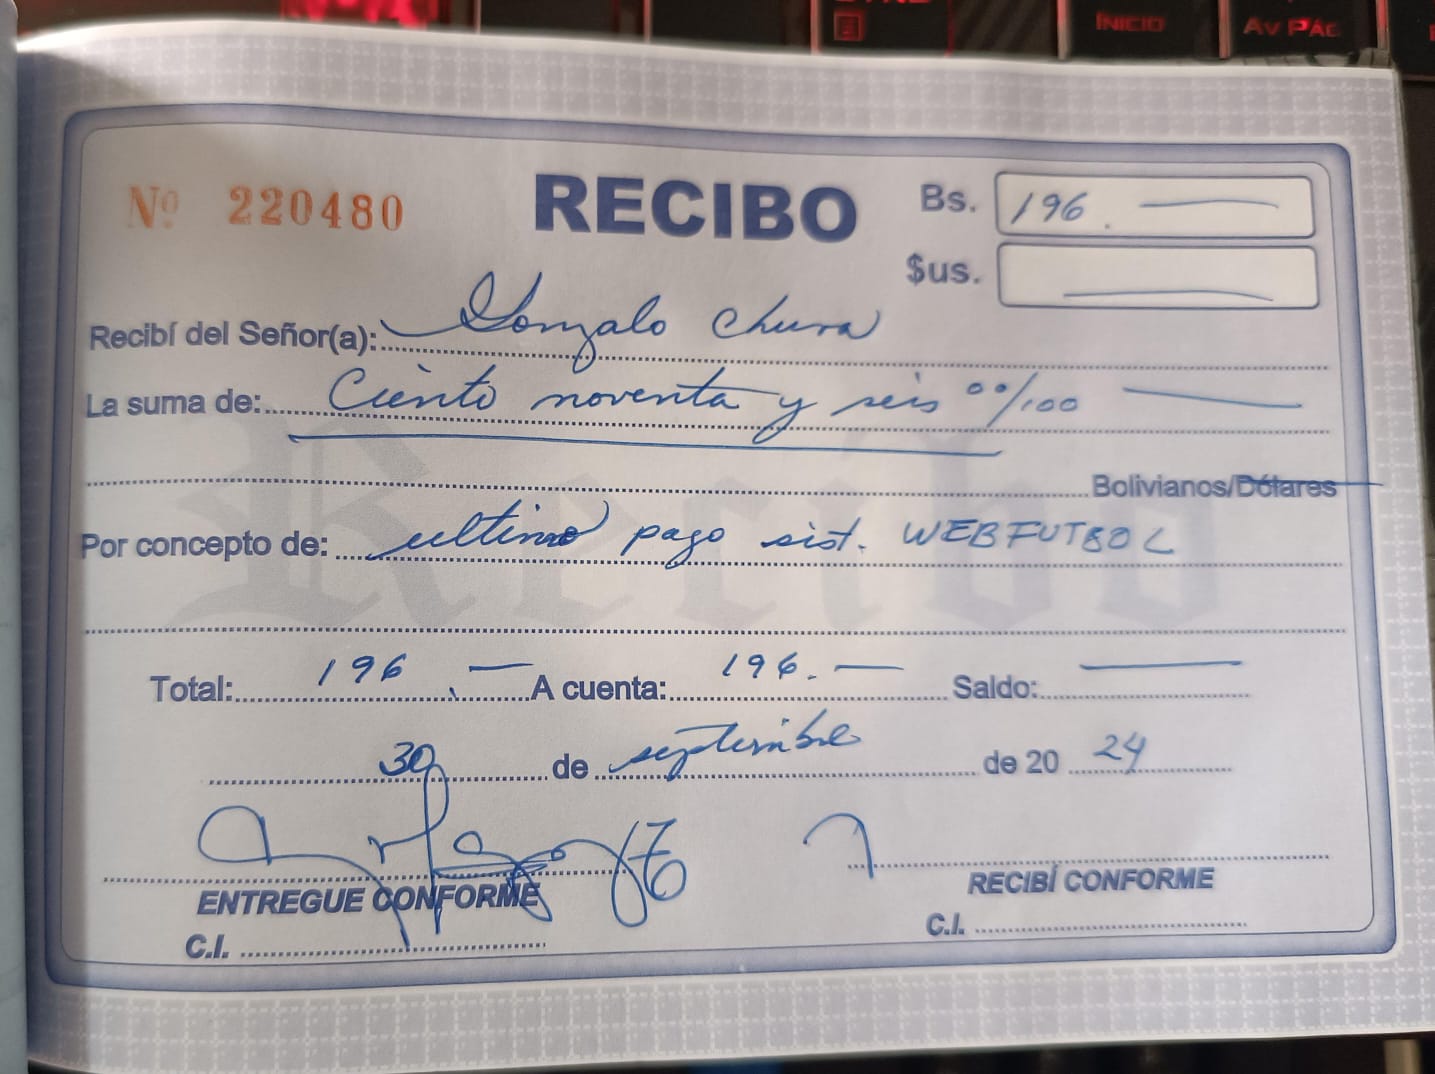 INICIO
AV PÁG
Nº 220480
RECIBO
Bs. 196.
$us.
Recibí del Señor(a): Gonzalo Chura
La suma de: Ciento noventa y seis 00/100
Bolivianos/Dólares
Por concepto de: ultimo pago sist. WEBFUTBOL
Total: 196. A cuenta: 196. Saldo:
30 de septiembre de 20 24
ENTREGUE CONFORME
RECIBÍ CONFORME
C.I.
C.I.
Recibo